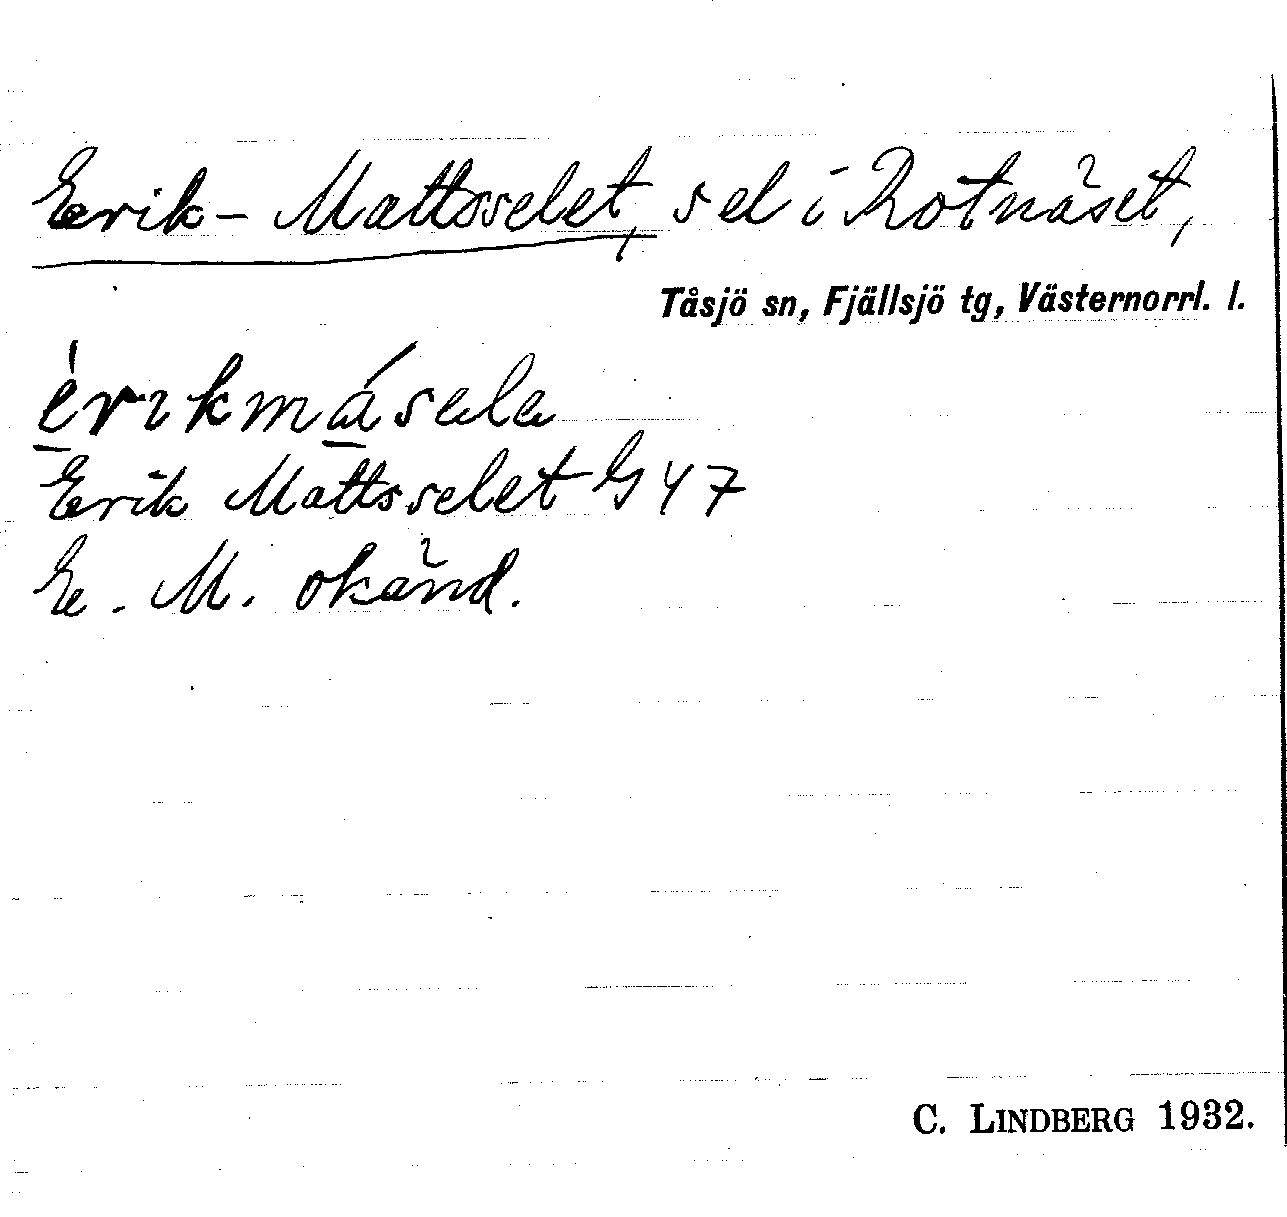 Erik-Mattsselet, sel i Rotnäset,
Tåsjö sn, Fjällsjö tg, Västernorrl. l.
èrıkmásala
Erik Mattsselet G 47
E. M. okänd.
C. LINDBERG 1932.